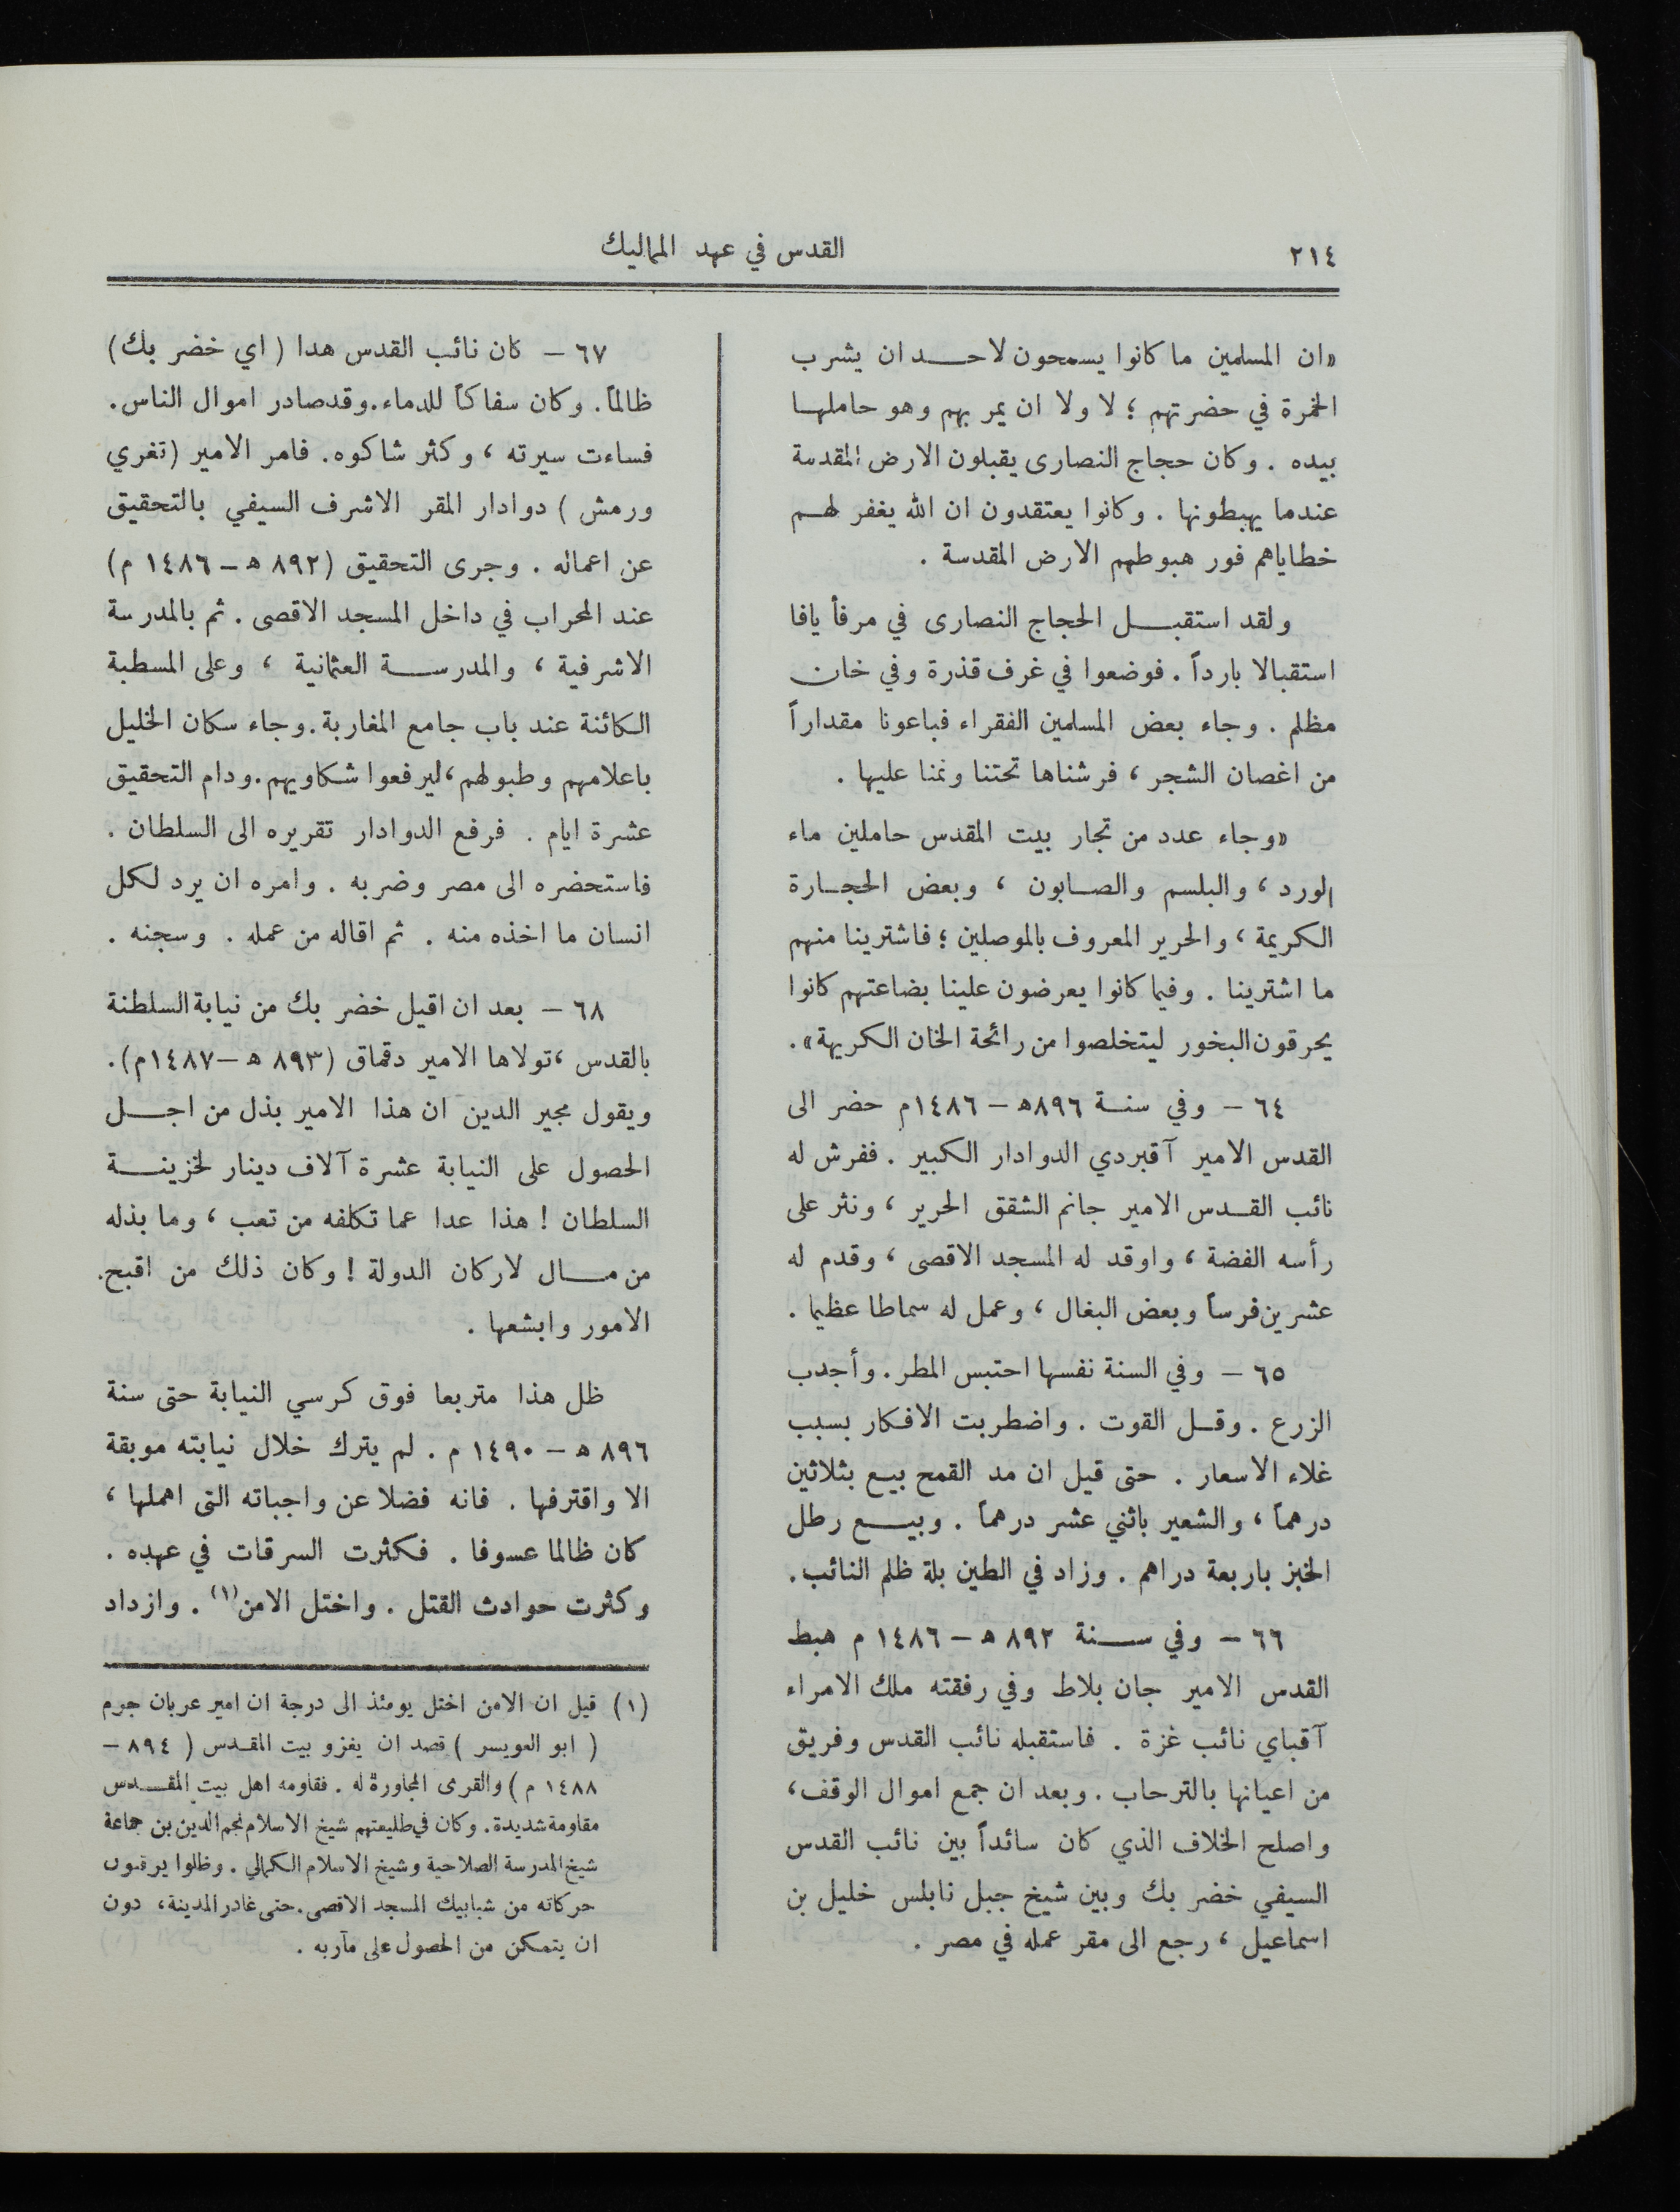 ٢١٤
القدس في عهد المماليك
«ان المسلمين ما كانوا يسمحون لاحد ان يشرب
الخمرة في حضرتهم ؛ لا ولا ان يمر بهم وهو حاملها
بيده . وكان حجاج النصارى يقبلون الارض المقدسة
عندما يهبطونها . وكانوا يعتقدون ان الله يغفر لهم
خطاياهم فور هبوطهم الارض المقدسة .
ولقد استقبل الحجاج النصارى في مرفأ يافا
استقبالا بارداً . فوضعوا في غرف قذرة وفي خان
مظلم . وجاء بعض المسلمين الفقراء فباعونا مقداراً
من اغصان الشجر ، فرشناها تحتنا ونمنا عليها .
«وجاء عدد من تجار بيت المقدس حاملين ماء
الورد ، والبلسم والصابون ، وبعض الحجارة
الكريمة ، والحرير المعروف بالموصلين ؛ فاشترينا منهم
ما اشترينا . وفيما كانوا يعرضون علينا بضاعتهم كانوا
يحرقون البخور ليتخلصوا من رائحة الخان الكريهة» .
٦٤ – وفي سنة ٨٩٦ه – ١٤٨٦م حضر الى
القدس الامير آقبردي الدوادار الكبير . ففرش له
نائب القدس الامير جانم الشقق الحرير ، ونثر على
رأسه الفضة ، واوقد له المسجد الاقصى ، وقدم له
عشرين فرساً وبعض البغال ، وعمل له سماطا عظيما .
٦٥ – وفي السنة نفسها احتبس المطر . وأجدب
الزرع . وقل القوت . واضطربت الافكار بسبب
غلاء الاسعار . حتى قيل ان مد القمح بيع بثلاثين
درهماً ، والشعير باثني عشر درهماً . وبيع رطل
الخبز باربعة دراهم . وزاد في الطين بلة ظلم النائب .
٦٦ – وفي سنة ٨٩٢ ه – ١٤٨٦ م هبط
القدس الامير جان بلاط وفي رفقته ملك الامراء
آقباي نائب غزة . فاستقبله نائب القدس وفريق
من اعيانها بالترحاب . وبعد ان جمع اموال الوقف ،
واصلح الخلاف الذي كان سائداً بين نائب القدس
السيفي خضر بك وبين شيخ جبل نابلس خليل بن
اسماعيل ، رجع الى مقر عمله في مصر .
٦٧ – كان نائب القدس هدا ( اي خضر بك )
ظالماً . وكان سفاكاً للدماء . وقد صادر اموال الناس .
فساءت سيرته ، وكثر شاكوه . فامر الامير (تغري
ورمش ) دوادار المقر الاشرف السيفي بالتحقيق
عن اعماله . وجرى التحقيق (٨٩٢ ه – ١٤٨٦ م )
عند المحراب في داخل المسجد الاقصى . ثم بالمدرسة
الاشرفية ، والمدرسة العثمانية ، وعلى المسطبة
الكائنة عند باب جامع المغاربة . وجاء سكان الخليل
باعلامهم وطبولهم ، ليرفعوا شكاويهم . ودام التحقيق
عشرة ايام . فرفع الدوادار تقريره الى السلطان .
فاستحضره الى مصر وضربه . وامره ان يرد لكل
انسان ما اخذه منه . ثم اقاله من عمله . وسجنه .
٦٨ – بعد ان اقيل خضر بك من نيابة السلطنة
بالقدس ، تولاها الامير دقماق (٨٩٣ ه – ١٤٨٧م) .
ويقول مجير الدين ان هذا الامير بذل من اجل
الحصول على النيابة عشرة آلاف دينار لخزينة
السلطان ! هذا عدا عما تكلفه من تعب ، وما بذله
من مال لاركان الدولة ! وكان ذلك من اقبح
الامور وابشعها .
ظل هذا متربعا فوق كرسي النيابة حتى سنة
٨٩٦ ه – ١٤٩٠ م . لم يترك خلال نيابته موبقة
الا واقترفها . فانه فضلا عن واجباته التى اهملها ،
كان ظالما عسوفا . فكثرت السرقات في عهده .
وكثرت حوادث القتل . واختل الامن (١) . وازداد
(١) قيل ان الامن اختل يومئذ الى درجة ان امير عربان جرم
( ابو العويسر ) قصد ان يغزو بيت المقدس ( ٨٩٤ –
١٤٨٨ م ) والقرى المجاورة له . فقاومه اهل بيت المقدس
مقاومة شديدة . وكان في طليعتهم شيخ الاسلام نجم الدين بن جماعة
شيخ المدرسة الصلاحية وشيخ الاسلام الكمالي . وظلوا يرقبون
حركاته من شبابيك المسجد الاقصى . حتى غادر المدينة ، دون
ان يتمكن من الحصول على مآربه .